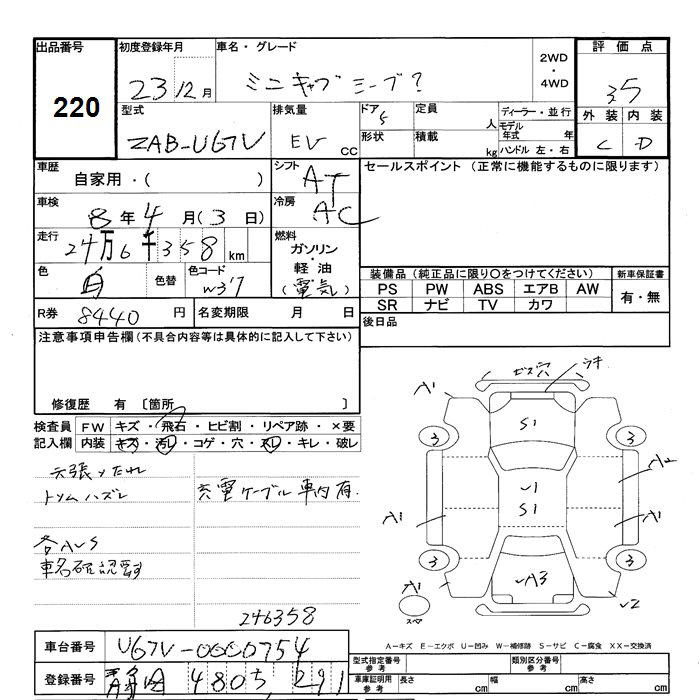 出品番号 初度登録年月 車名・グレード 評価点
220 23 12月 ミニキャブ ミーブ? 2WD ・ 4WD 3.5
型式 排気量 ドア 定員 ディーラー・並行 外装 内装
ZAB-U67V EV CC 5 人 モデル年式 年 C D
形状 積載 kg ハンドル 左・右
車歴 シフト セールスポイント (正常に機能するものに限ります)
自家用・( ) AT
車検 冷房
8年4月(3日) AC
走行 燃料
24万6千358 km ガソリン・軽油
色 色替 色コード (電気)
白 W37
装備品 (純正品に限り○をつけてください) 新車保証書
PS PW ABS エアB AW 有・無
SR ナビ TV カワ
R券 8440円 名変期限 月 日 後日品
注意事項申告欄(不具合内容等は具体的に記入して下さい)
修復歴 有 〔箇所 〕
検査員 FW キズ・飛石・ヒビ割・リペア跡・×要
記入欄 内装 キズ・汚レ・コゲ・穴・スレ・キレ・破レ
天張リたれ
トリムハズレ 充電ケーブル車内有.
各AUS
車名確認要す
246358
ビス穴 ウキ
A1
S1
3 3
U1 A2
S1
A1 A1
3 3
A1 UA3
スペア U2
A-キズ E-エクボ U-凹み W-補修跡 S-サビ C-腐食 XX-交換済
車台番号 U67V-0000754
登録番号 480 291
型式指定番号 参考 類別区分番号 参考
車庫証明用 参考 長さ cm 幅 cm 高さ cm